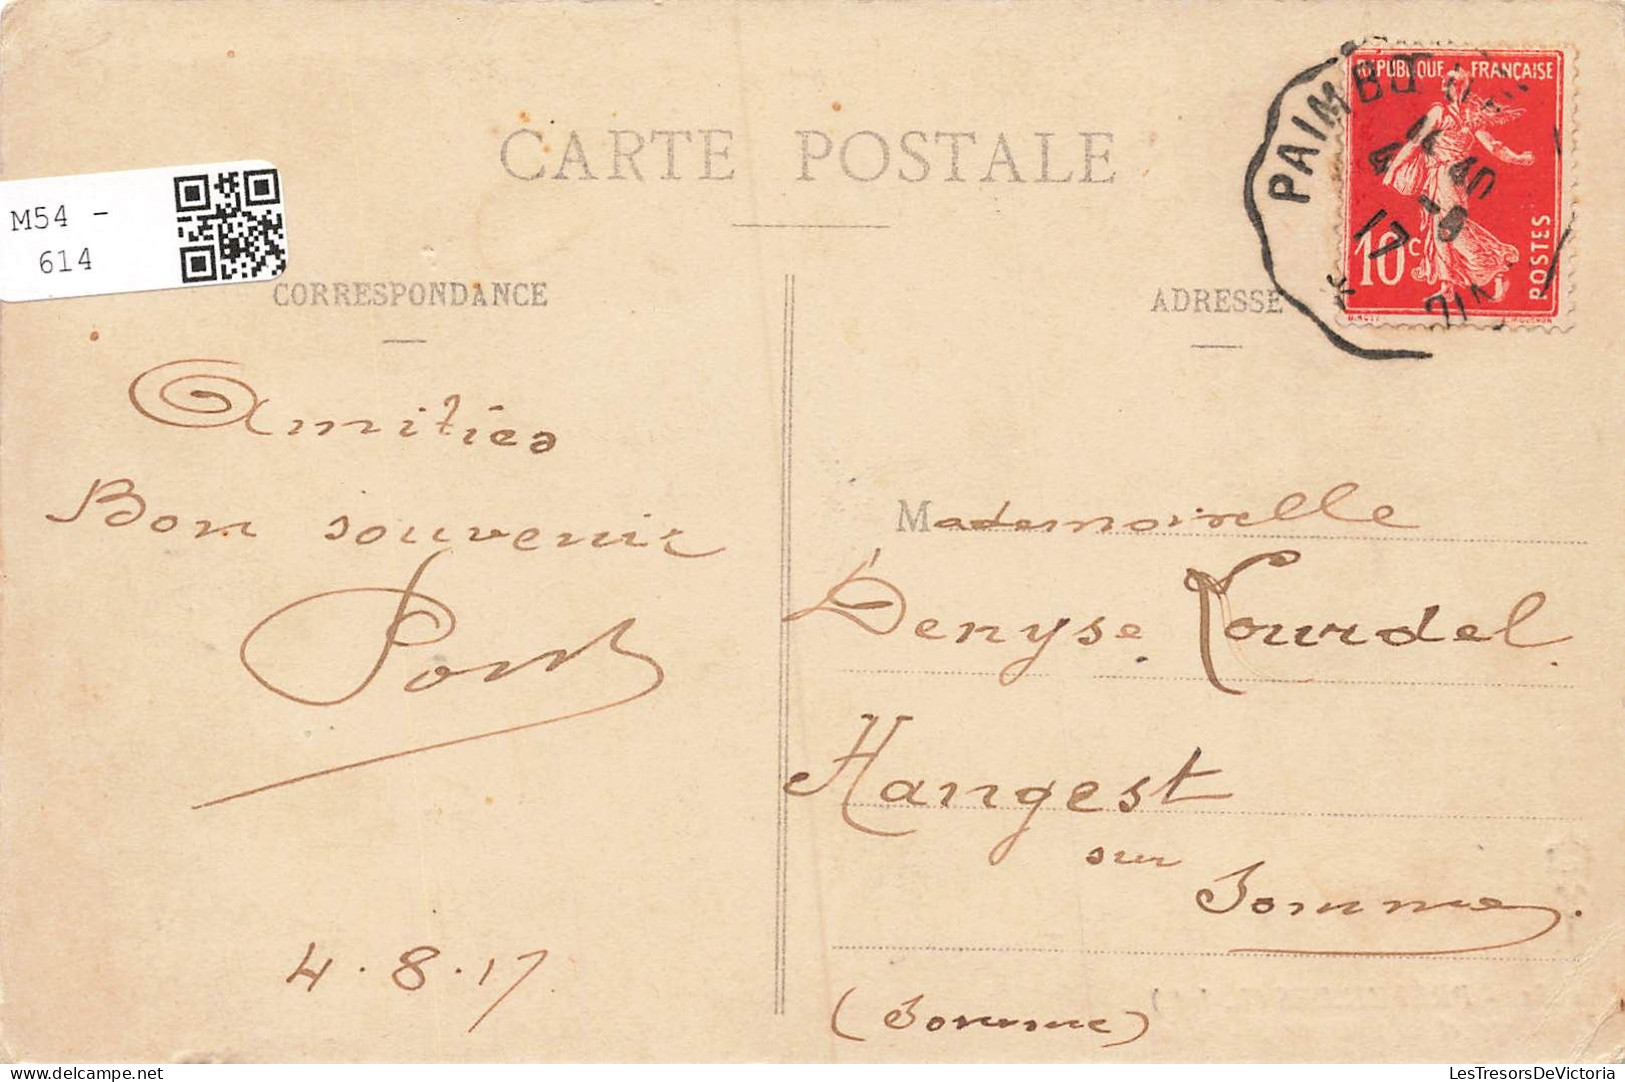 CARTE POSTALE
M54 -
614
CORRESPONDANCE
ADRESSE
RÉPUBLIQUE FRANÇAISE
10c
POSTES
PAIMBO
4 -8
17
Amitiés
Bon souvenir
4.8.17
Mademoiselle
Denyse Lourdel.
Hangest
sur
Somme.
(Somme)
delcampe.net
LesTresorsDeVictoria